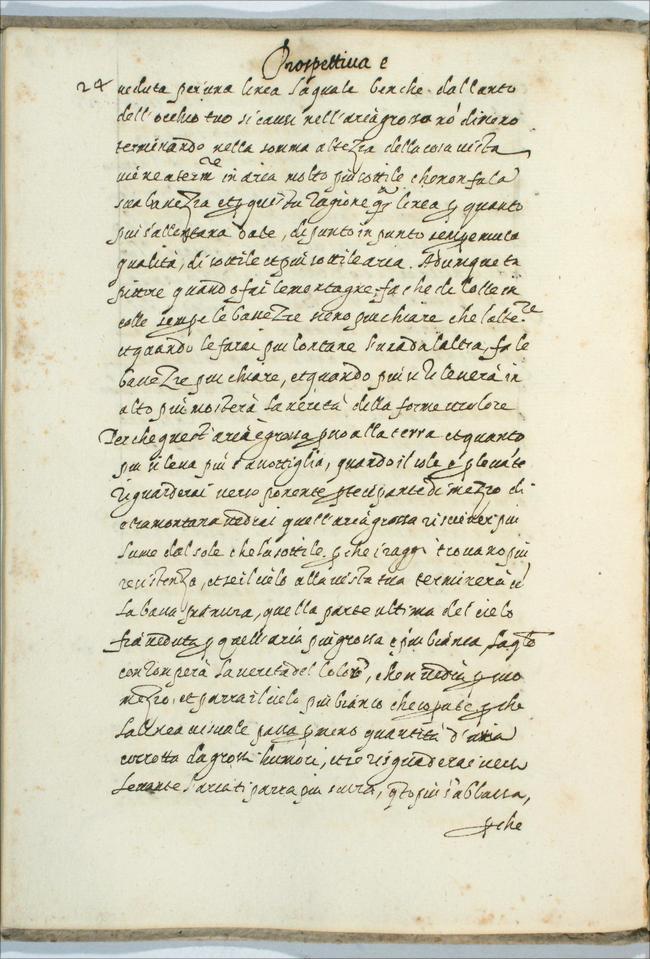 Prospettiua e
24 ueduta per una linea la quale benche dal lanto
dell'occhio tuo si causi nell'aria grossa nõ dimeno
terminando nella somma altezza della cosa uista
uiene a term.re in aria molto piu sottile che non fa la
sua bassezza et questa ragione q.ta linea quanto
piu s'allontana da te, di punto in punto sempre muta
qualità, di sottile et piu sottile aria. Adunque tu
pittore quando fai le montagne, fa che di colle in
colle sempre le bassezze sieno piu chiare che l'alte.re
et quando le farai piu lontane l'una dà l'altra, fa le
bassezze piu chiare, et quando piu si leuerà in
alto piu mosterà la uerità della forma et colore
Perche quest'aria è grossa presso alla terra et quanto
piu si leua piu s'assottiglia, quando il sole è per leuante
riguarderai uerso ponente partecipante di mezzo di
e tramontana uedrai quell'aria grossa riceuer piu
lume dal sole che la sottile perche i raggi trouano piu
resistenza, et se il cielo alla uista tua terminerà cõ
la bassa pianura, quella parte ultima del cielo
fia ueduta per quell'aria piu grossa e piu bianca, la q.le
corromperà la uerità del colore, che si uedrà per suo
mezzo, et parrà il cielo piu bianco che sopra te perche
la linea uisuale passa per meno quantità d'aria
corrotta da grossi humori, et se riguaderai uerso
Leuante l'aria ti parrà piu scura, q.to piu s'abbassa,
perche